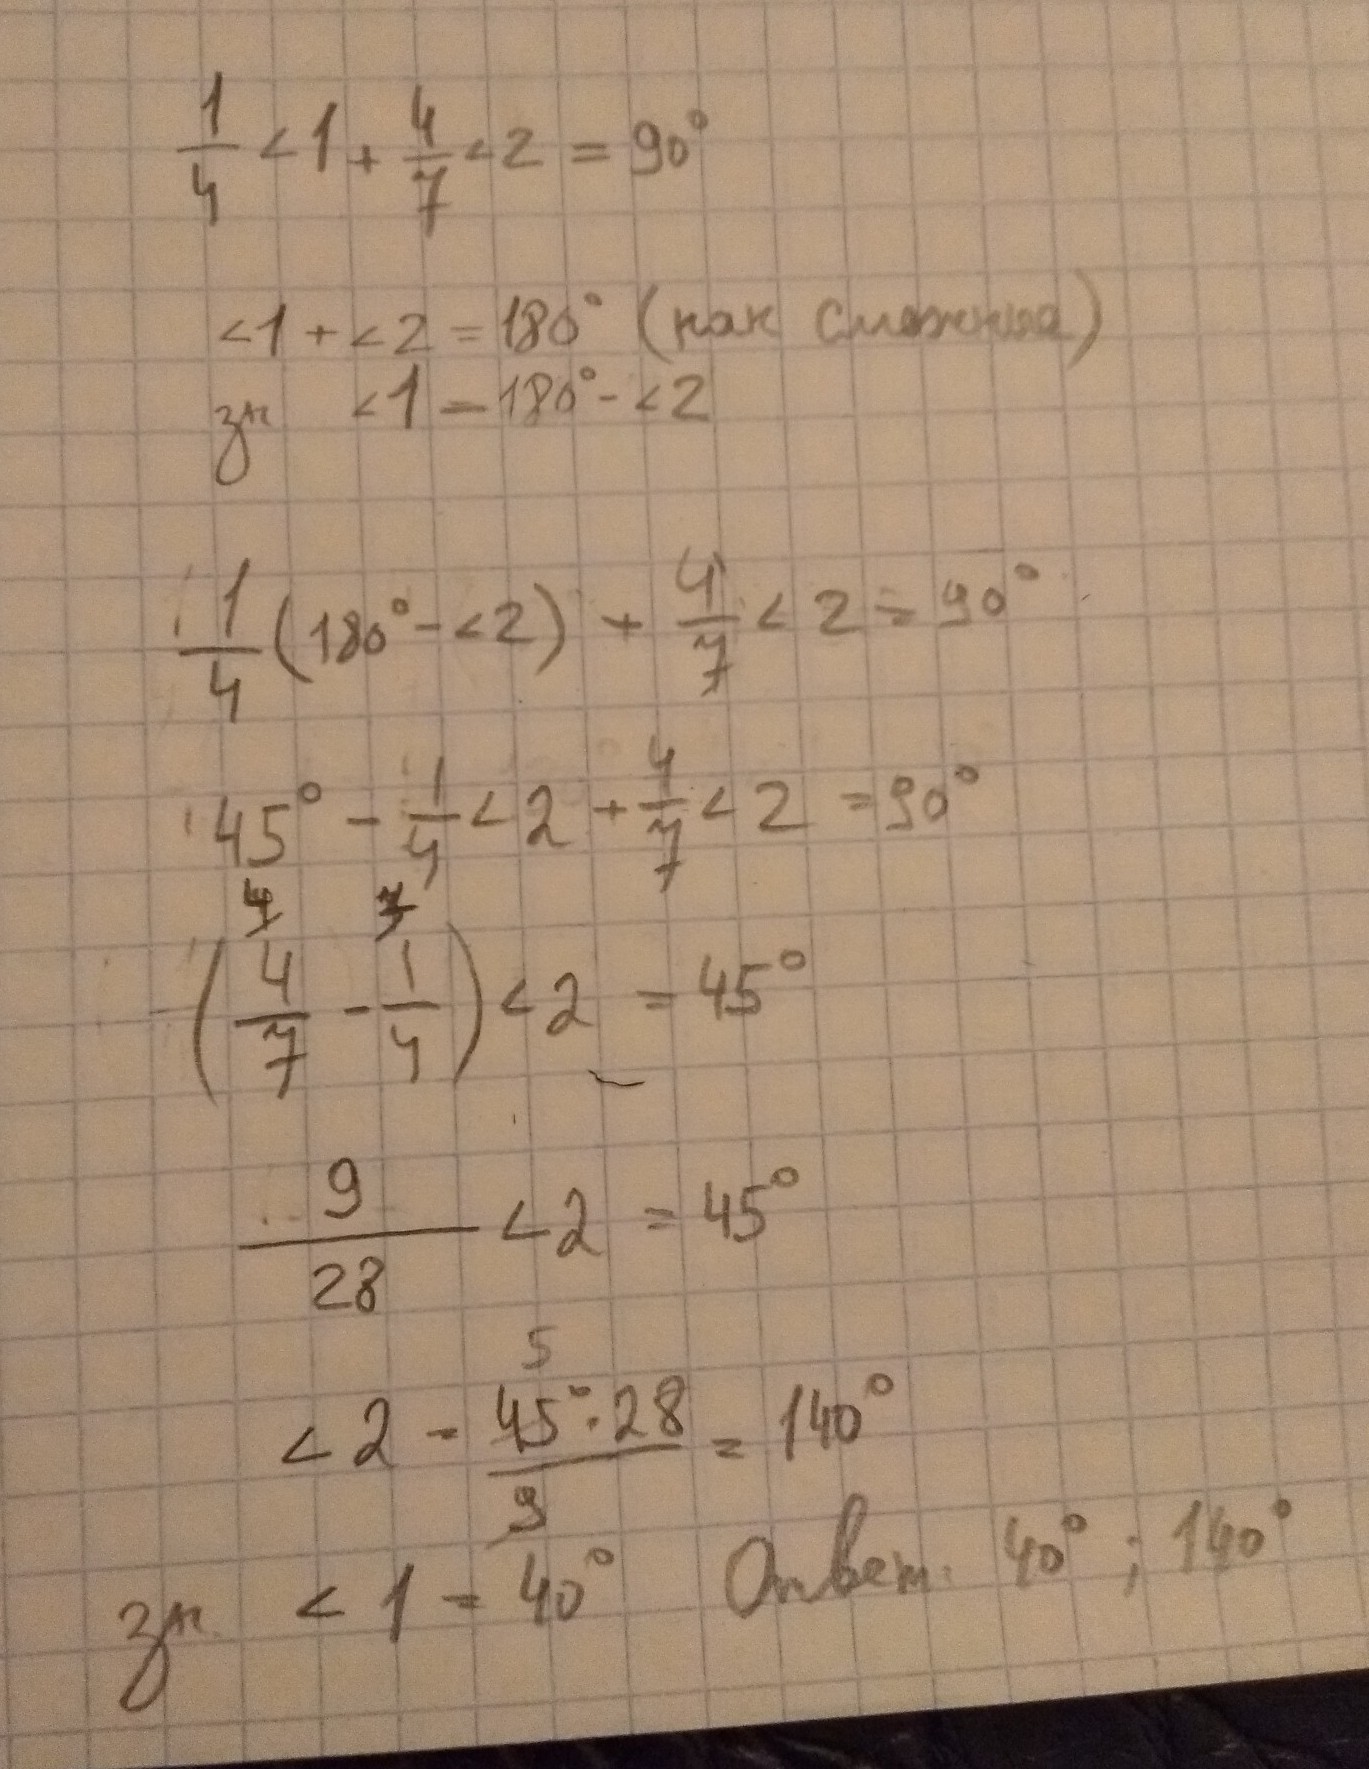 1/4 <1 + 4/7 <2 = 90°
<1 + <2 = 180° (как смежные)
зн <1 = 180° - <2
1/4 (180° - <2) + 4/7 <2 = 90°
45° - 1/4 <2 + 4/7 <2 = 90°
4 7
(4/7 - 1/4) <2 = 45°
9/28 <2 = 45°
5
<2 = 45°·28/9 = 140°
зн <1 = 40° Ответ: 40° ; 140°